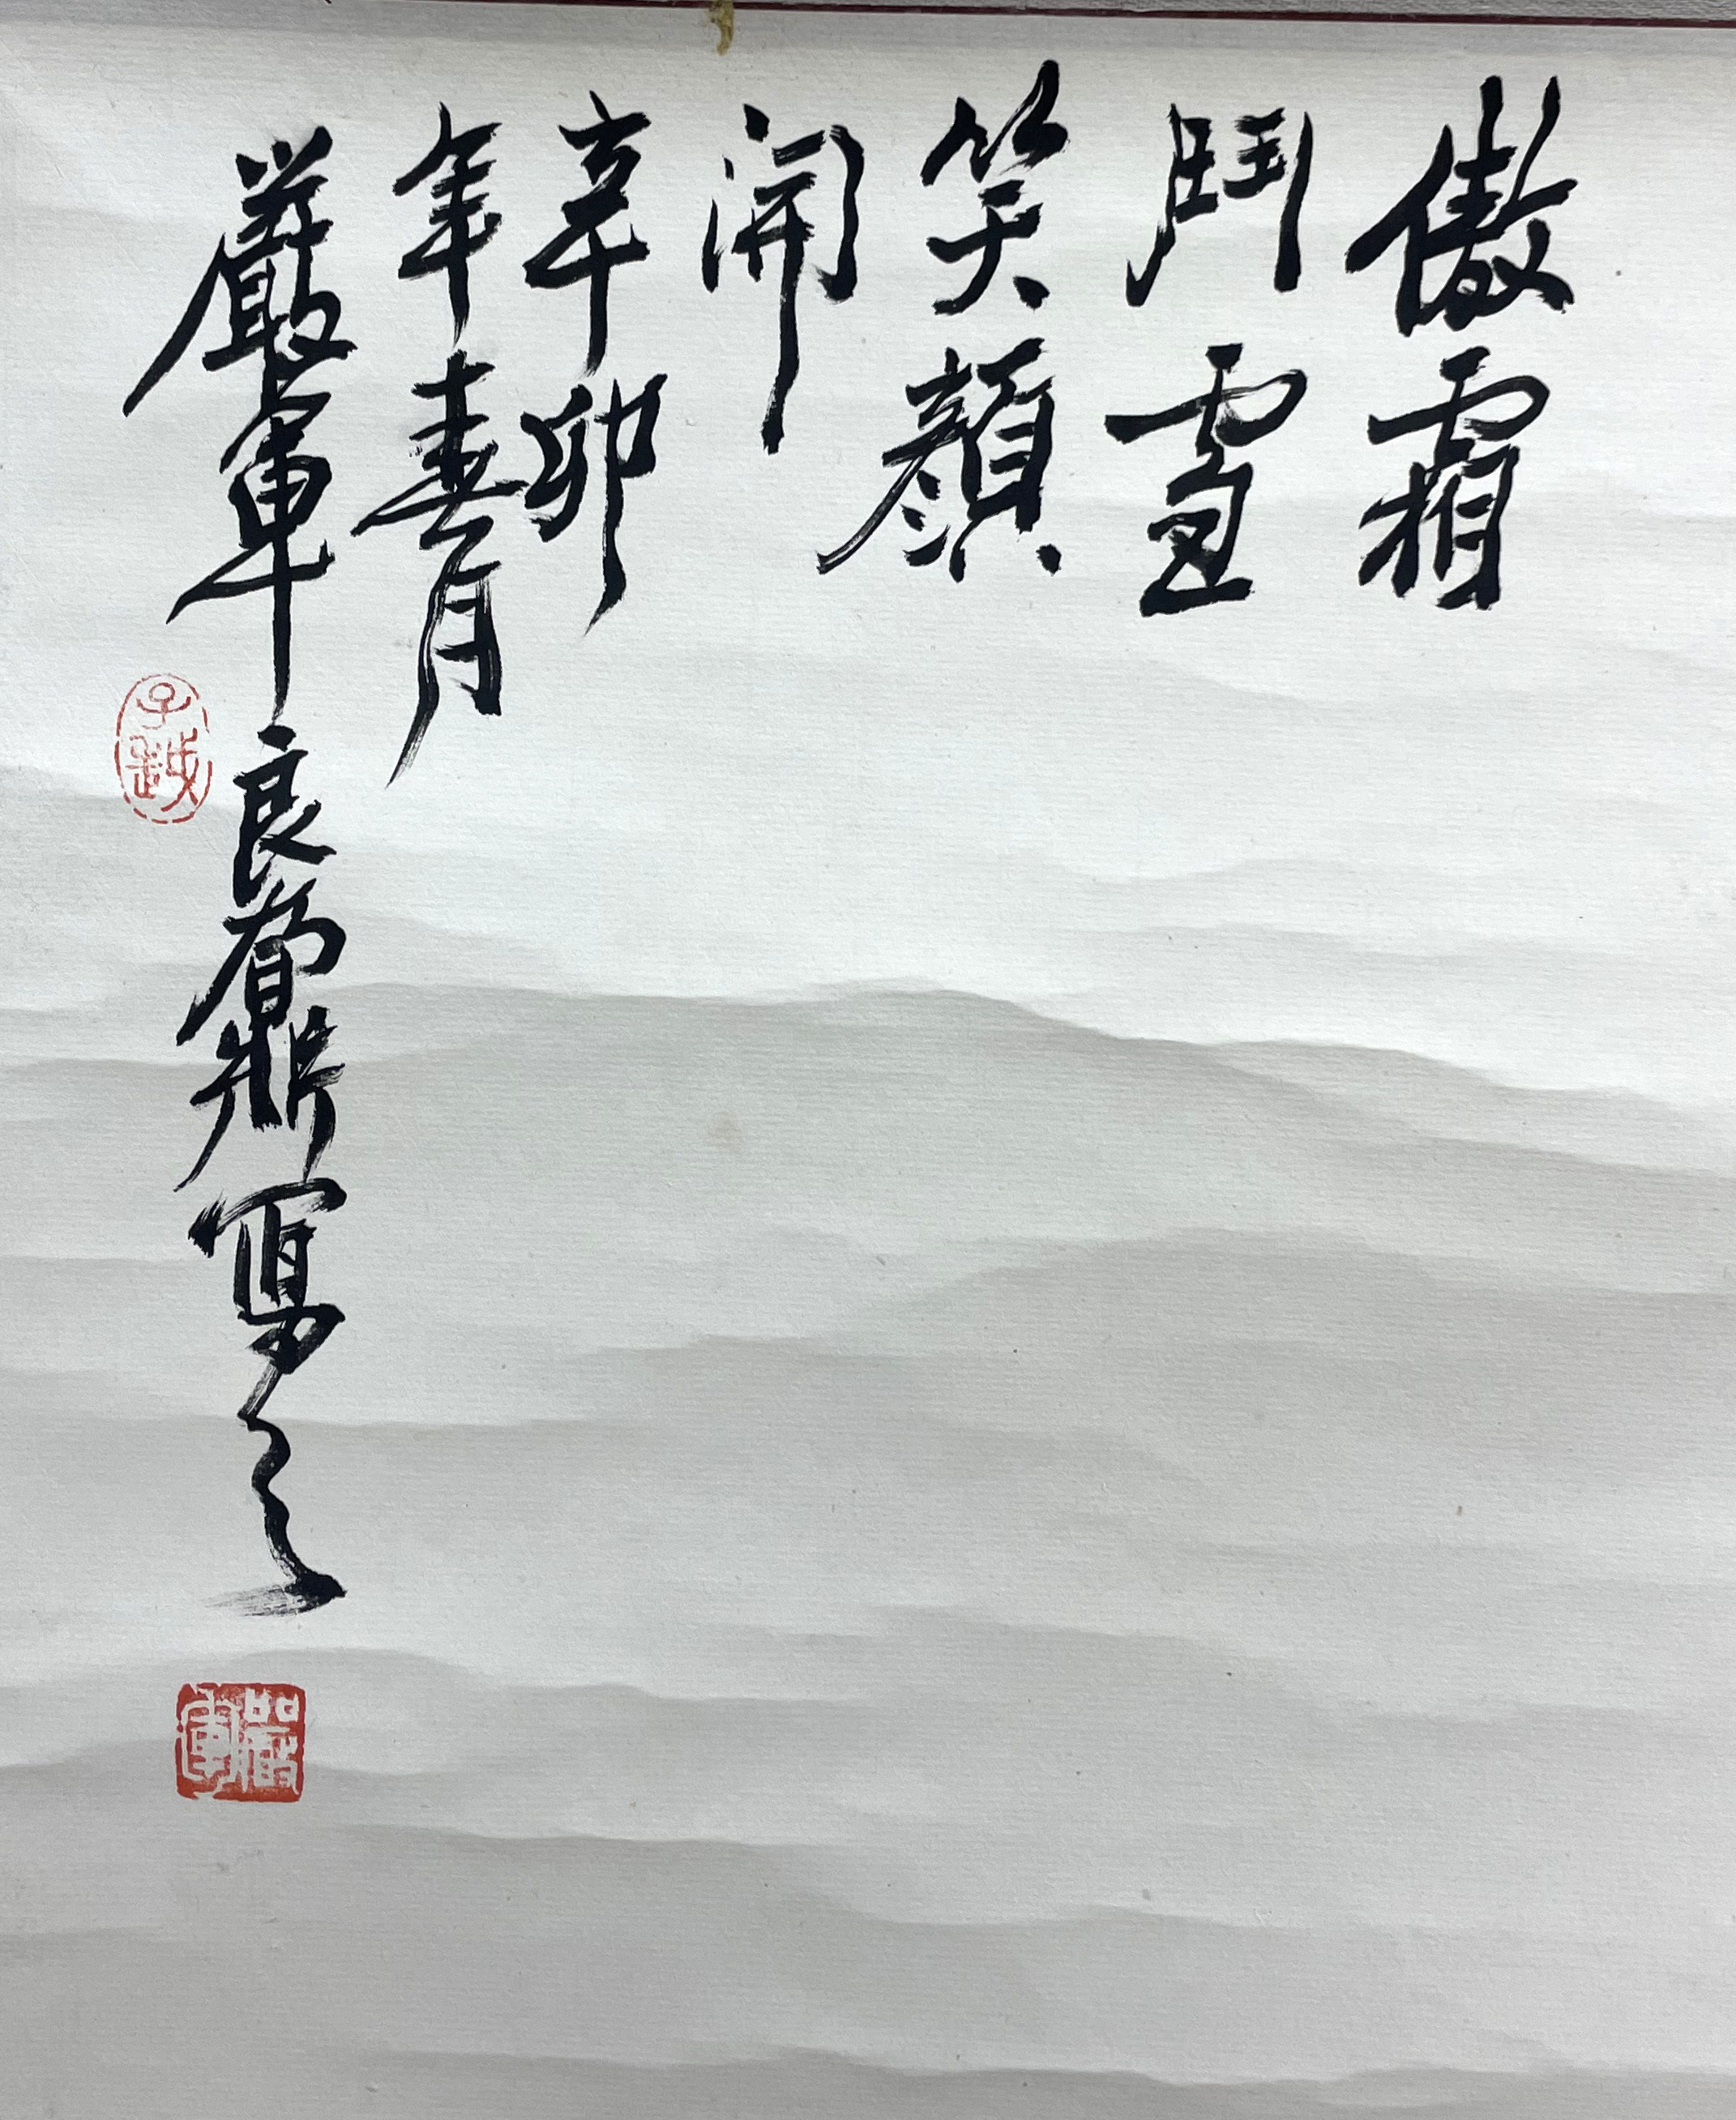 傲霜
鬥雪
笑顔
開
辛卯
年春月
嚴軍良齋寫之
子越
嚴軍